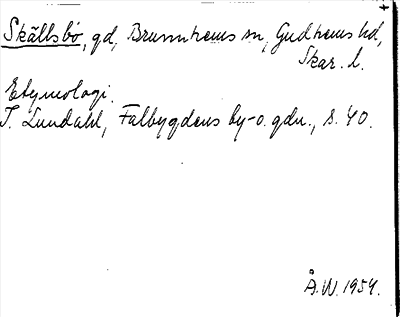 Skällsbo, gd, Brunnhems sn, Gudhems hd,
Skar. l.
Etymologi.
I. Lundahl, Falbygdens by-o. gdn., s. 40.
Å.W. 1954.